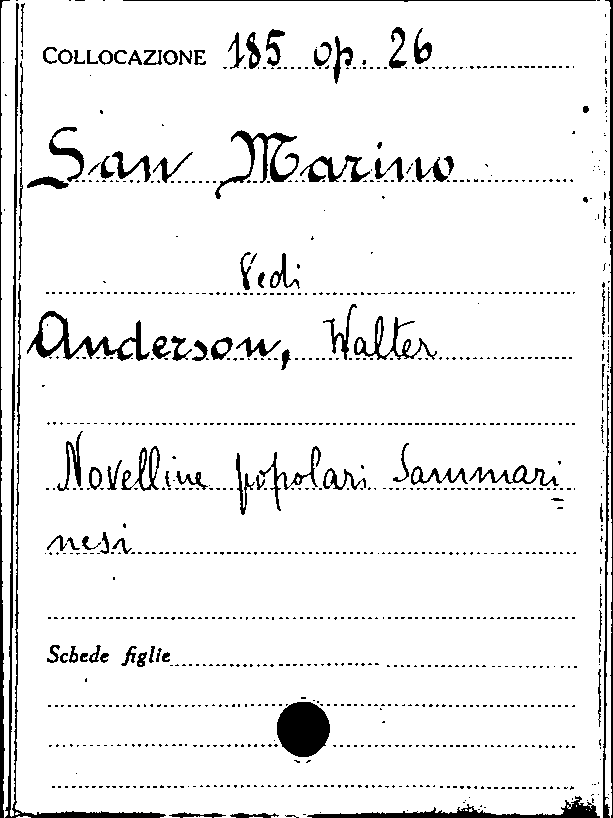 COLLOCAZIONE 185 op. 26
San Marino
Vedi
Anderson, Walter
Novelline popolari Sammari=
nesi
Schede figlie